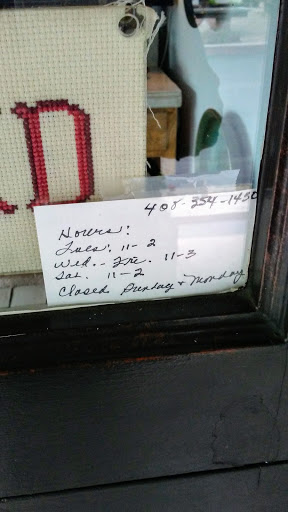 D
408-354-1450
Hours:
Tues: 11-2
Wed.-Fri. 11-3
Sat. 11-2
Closed Sunday + Monday